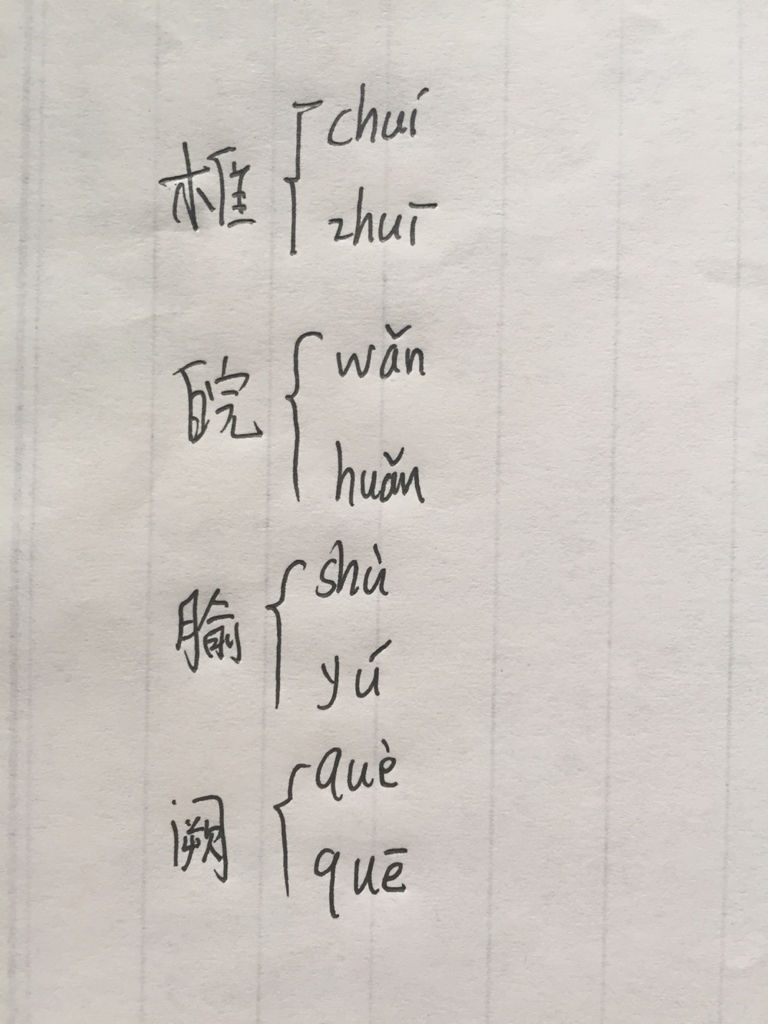 椎 { chuí
zhuī
皖 { wǎn
huǎn
腧 { shù
yú
阙 { què
quē